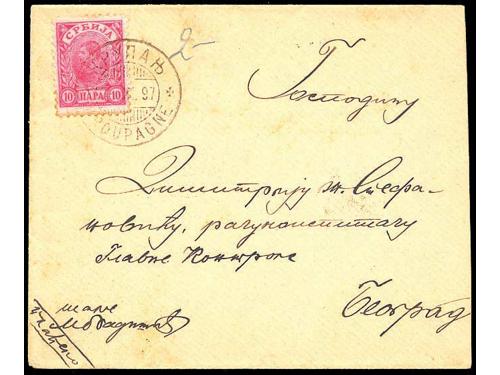 СРБИЈА
10 ПАРА 10
97
2-
Господину
Димитрију М. Стефа-
новићу, рачуноиспитачу
Главне Контроле
Београд